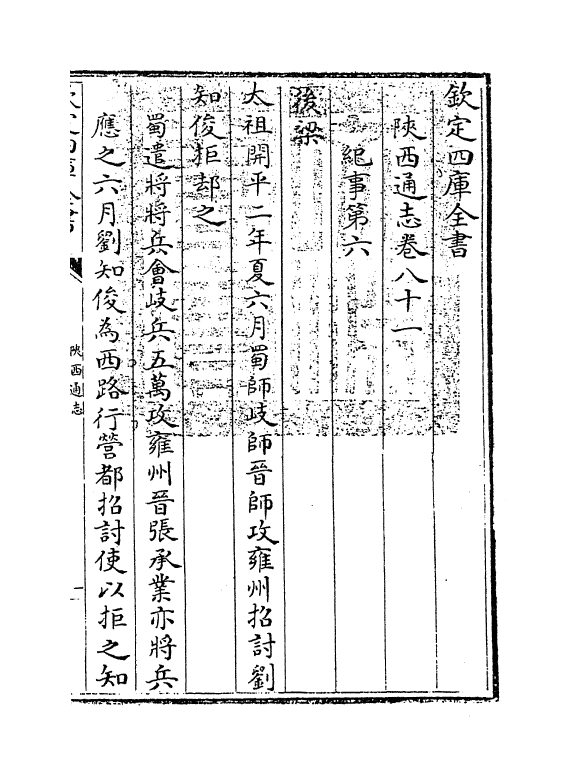 欽定四庫全書
陜西通志卷八十一
紀事第六
後梁
太祖開平二年夏六月蜀師岐師晉師攻雍州招討劉
知俊拒却之
蜀遣將將兵會岐兵五萬攻雍州晉張承業亦將兵
應之六月劉知俊為西路行營都招討使以拒之知
陜西通志
一